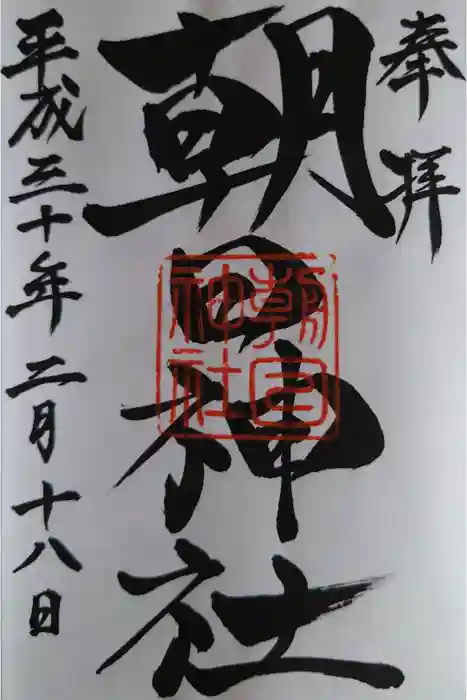 奉拝
朝日神社
朝日神社
平成三十年二月十八日